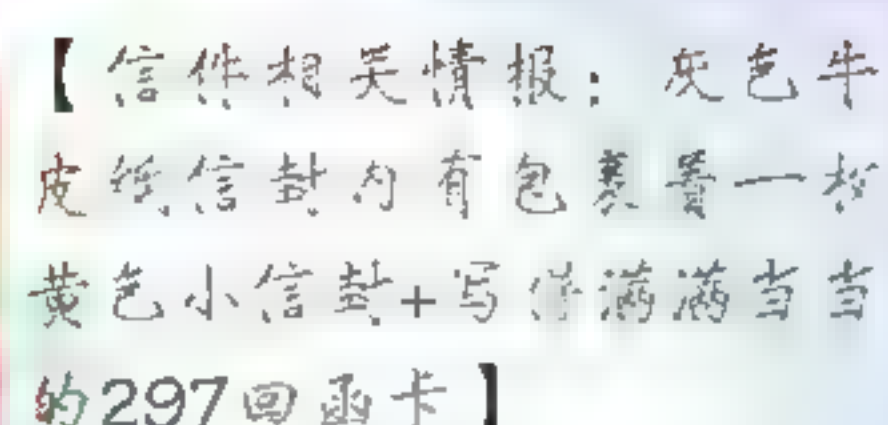 【信件相关情报：灰色牛
皮纸信封内有包裹着一枚
黄色小信封+写得满满当当
的297回函卡】